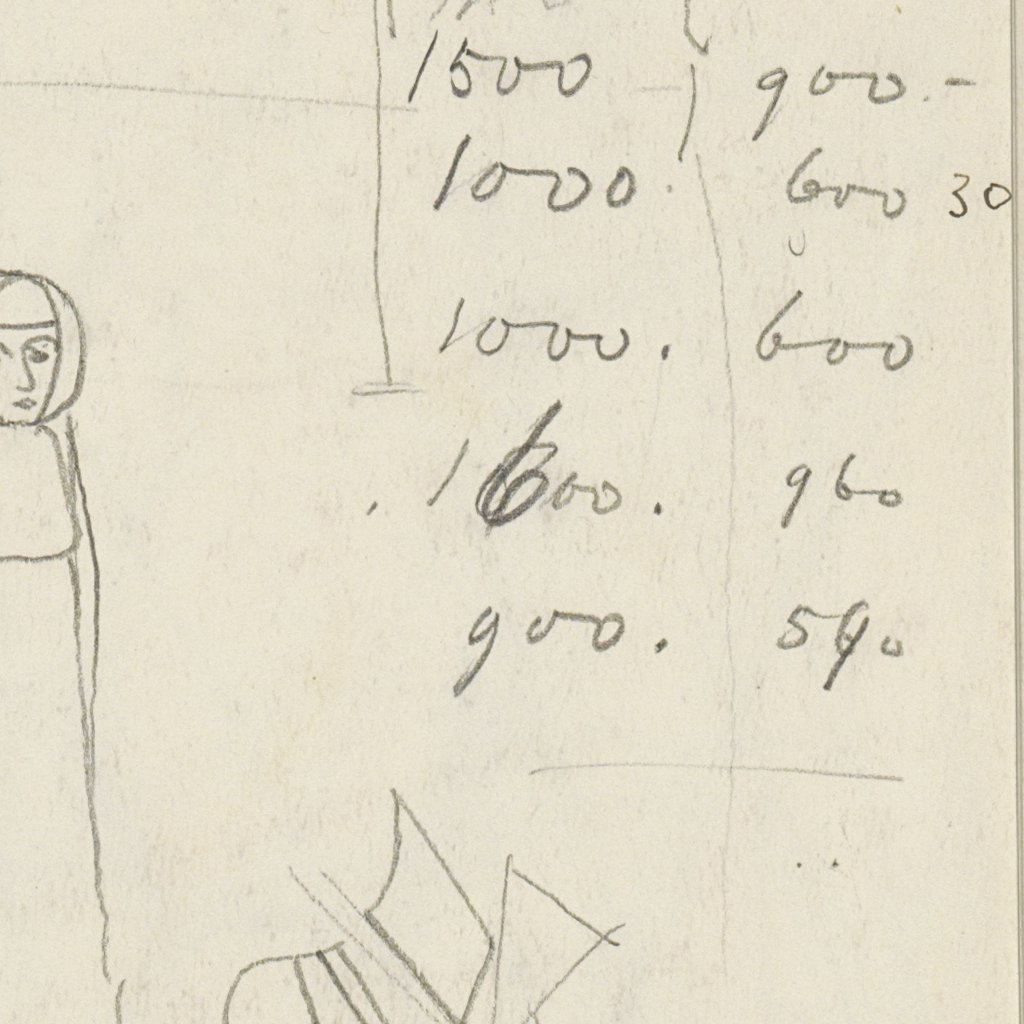 1500 900.-
1000. 600 30
1000. 600
. 1600. 960
900. 540